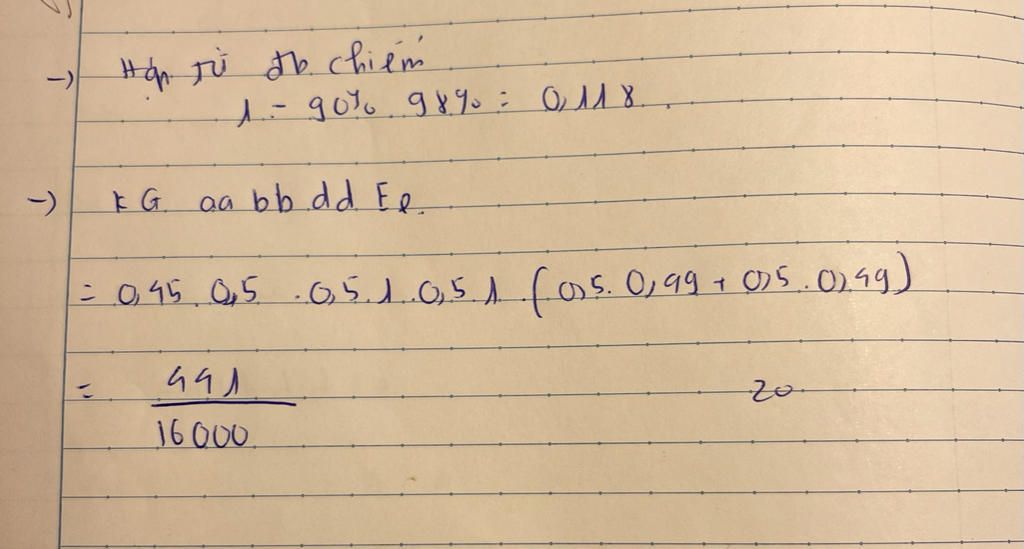 → Hợp tử đb chiếm
1 - 90%. 98% = 0,118.
→ KG aa bb dd Ee.
= 0,45. 0,5 . 0,5.1.0,5.1. (0,5. 0,49 + 0,5. 0,49)
= 441
16000
20